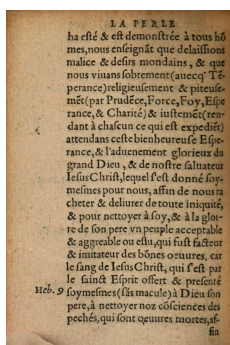 LA PERLE
ha esté & est demonstrée à tous hõ
mes, nous enseignãt que delaissions
malice & desirs mondains, & que
nous viuans sobrement (auecq' Tẽ-
perance) religieusement & piteuse-
mẽt (par Prudẽce, Force, Foy, Espe
rance, & Charité) & iustemẽt (ren-
dant à chascun ce qui est expediẽt)
attendans ceste bienheureuse Espe-
rance, & l'aduenement glorieux du
grand Dieu, & de nostre saluateur
Iesus Christ, lequel s'est donné soy-
mesmes pour nous, affin de nous ra
cheter & deliurer de toute iniquité,
& pour nettoyer à soy, & à la gloi-
re de son pere vn peuple acceptable
& aggreable ou esleu, qui fust facteur
& imitateur des bõnes oeuures, car
le sang de Iesus Christ, qui s'est par
le sainct Esprit offert & presenté
Heb. 9 soymesmes (sãs macule) à Dieu son
pere, à nettoyer noz cõsciences des
pechés, qui sont oeuures mortes, af-
fin